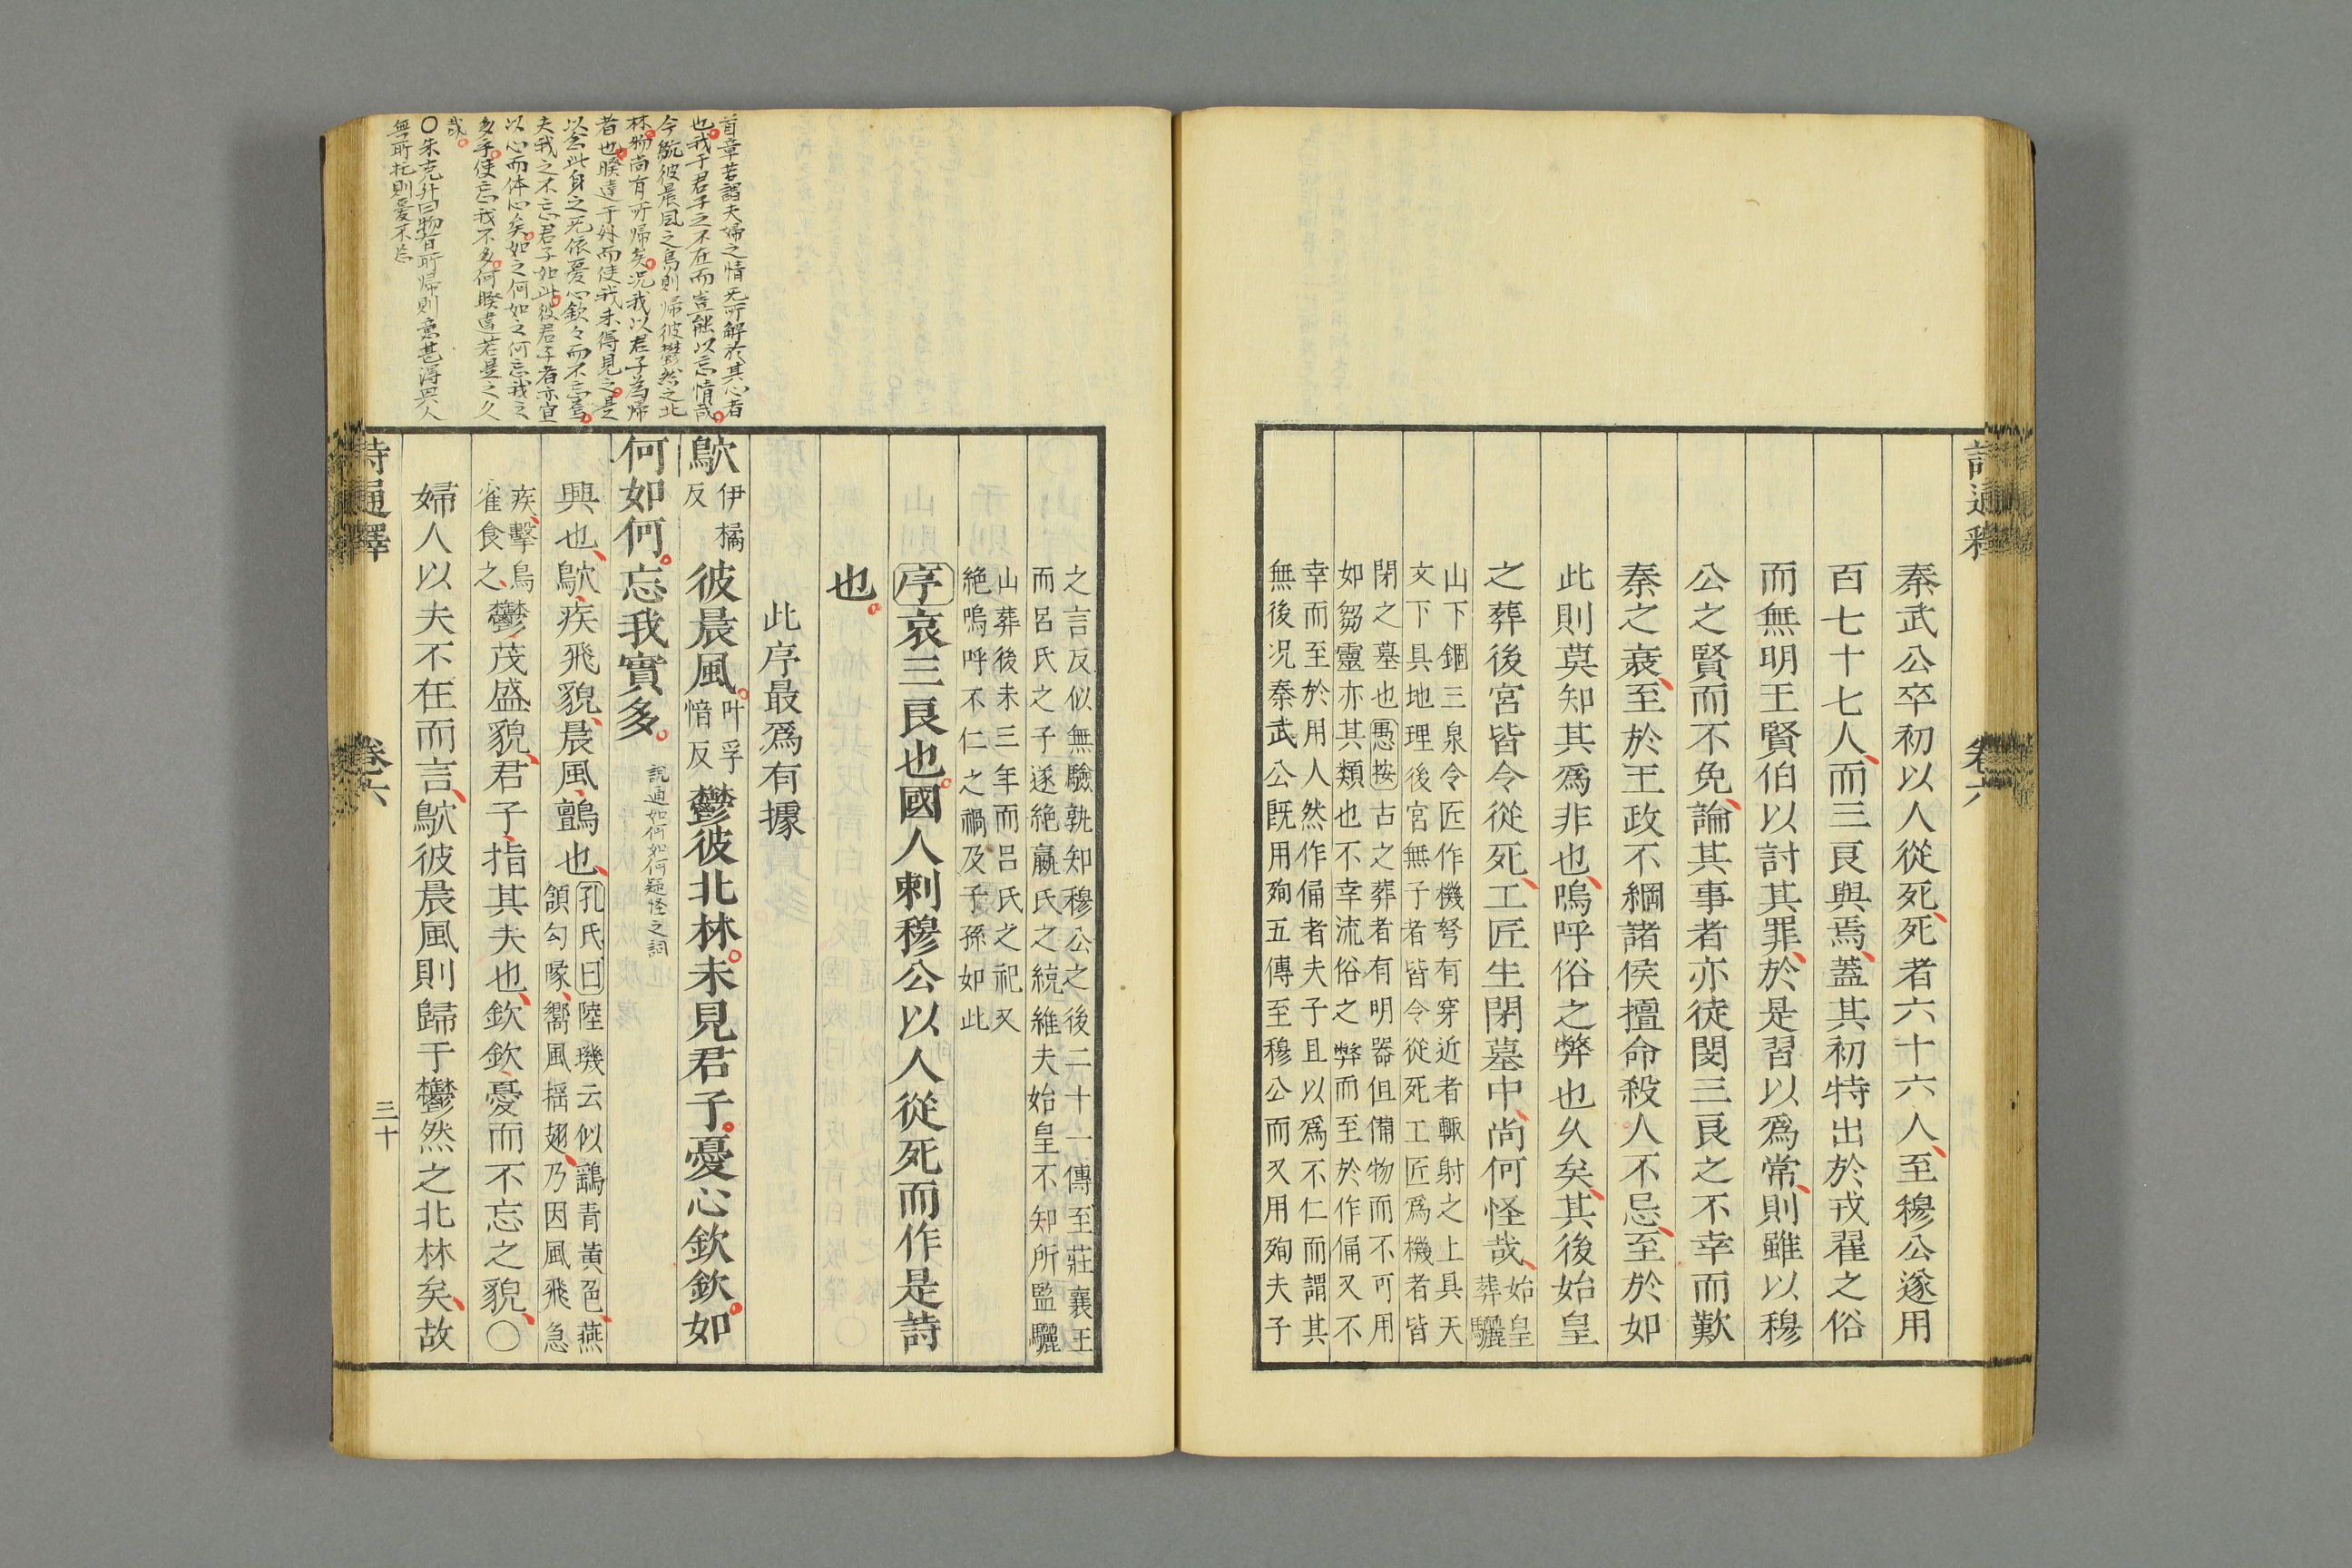 詩通釋
卷六
秦武公卒初以人從死死者六十六人至穆公遂用
百七十七人而三良與焉蓋其初特出於戎翟之俗
而無明王賢伯以討其罪於是習以爲常則雖以穆
公之賢而不免論其事者亦徒閔三良之不幸而歎
秦之衰至於王政不綱諸侯擅命殺人不忌至於如
此則莫知其爲非也嗚呼俗之弊也久矣其後始皇
之葬後宮皆令從死工匠生閉墓中尚何怪哉
始皇
葬驪
山下錮三泉令匠作機弩有穿近者輒射之上具天
文下具地理後宮無子者皆令從死工匠爲機者皆
閉之墓也愚按古之葬者有明器但備物而不可用
如芻靈亦其類也不幸流俗之弊而至於作俑又不
幸而至於用人然作俑者夫子且以爲不仁而謂其
無後况秦武公既用殉五傳至穆公而又用殉夫子
之言反似無驗孰知穆公之後二十一傳至莊襄王
而呂氏之子遂絶嬴氏之統維夫始皇不知所監驪
山葬後未三年而呂氏之祀又
絶嗚呼不仁之禍及子孫如此
序哀三良也國人刺穆公以人從死而作是詩
也
此序最爲有據
鴥
伊橘
反
彼晨風
叶孚
愔反
鬱彼北林未見君子憂心欽欽如
何如何忘我實多
說通如何如何疑怪之詞
興也鴥疾飛貌晨風鸇也
孔氏曰陸璣云似鷂青黃色燕
頷勾喙嚮風搖翅乃因風飛急
疾擊鳥
雀食之
鬱茂盛貌君子指其夫也欽欽憂而不忘之貌○
婦人以夫不在而言鴥彼晨風則歸于鬱然之北林矣故
詩通釋
卷六
三十
首章若謂夫婦之情无所解於其心者
也我于君子之不在而豈能以忘情哉
今鴥彼晨風之鳥則歸彼鬱然之北
林物尚有所歸矣况我以君子為歸
者也睽違于外而使我未得見之是
以念此身之无依憂心欽々而不忘焉
夫我之不忘君子如此彼君子者亦宜
以心而体心矣如之何如之何忘我之
多乎使忘我不多何睽違若是之久
哉
○朱克升曰物皆所歸則意甚得興人
無所托則憂不忘